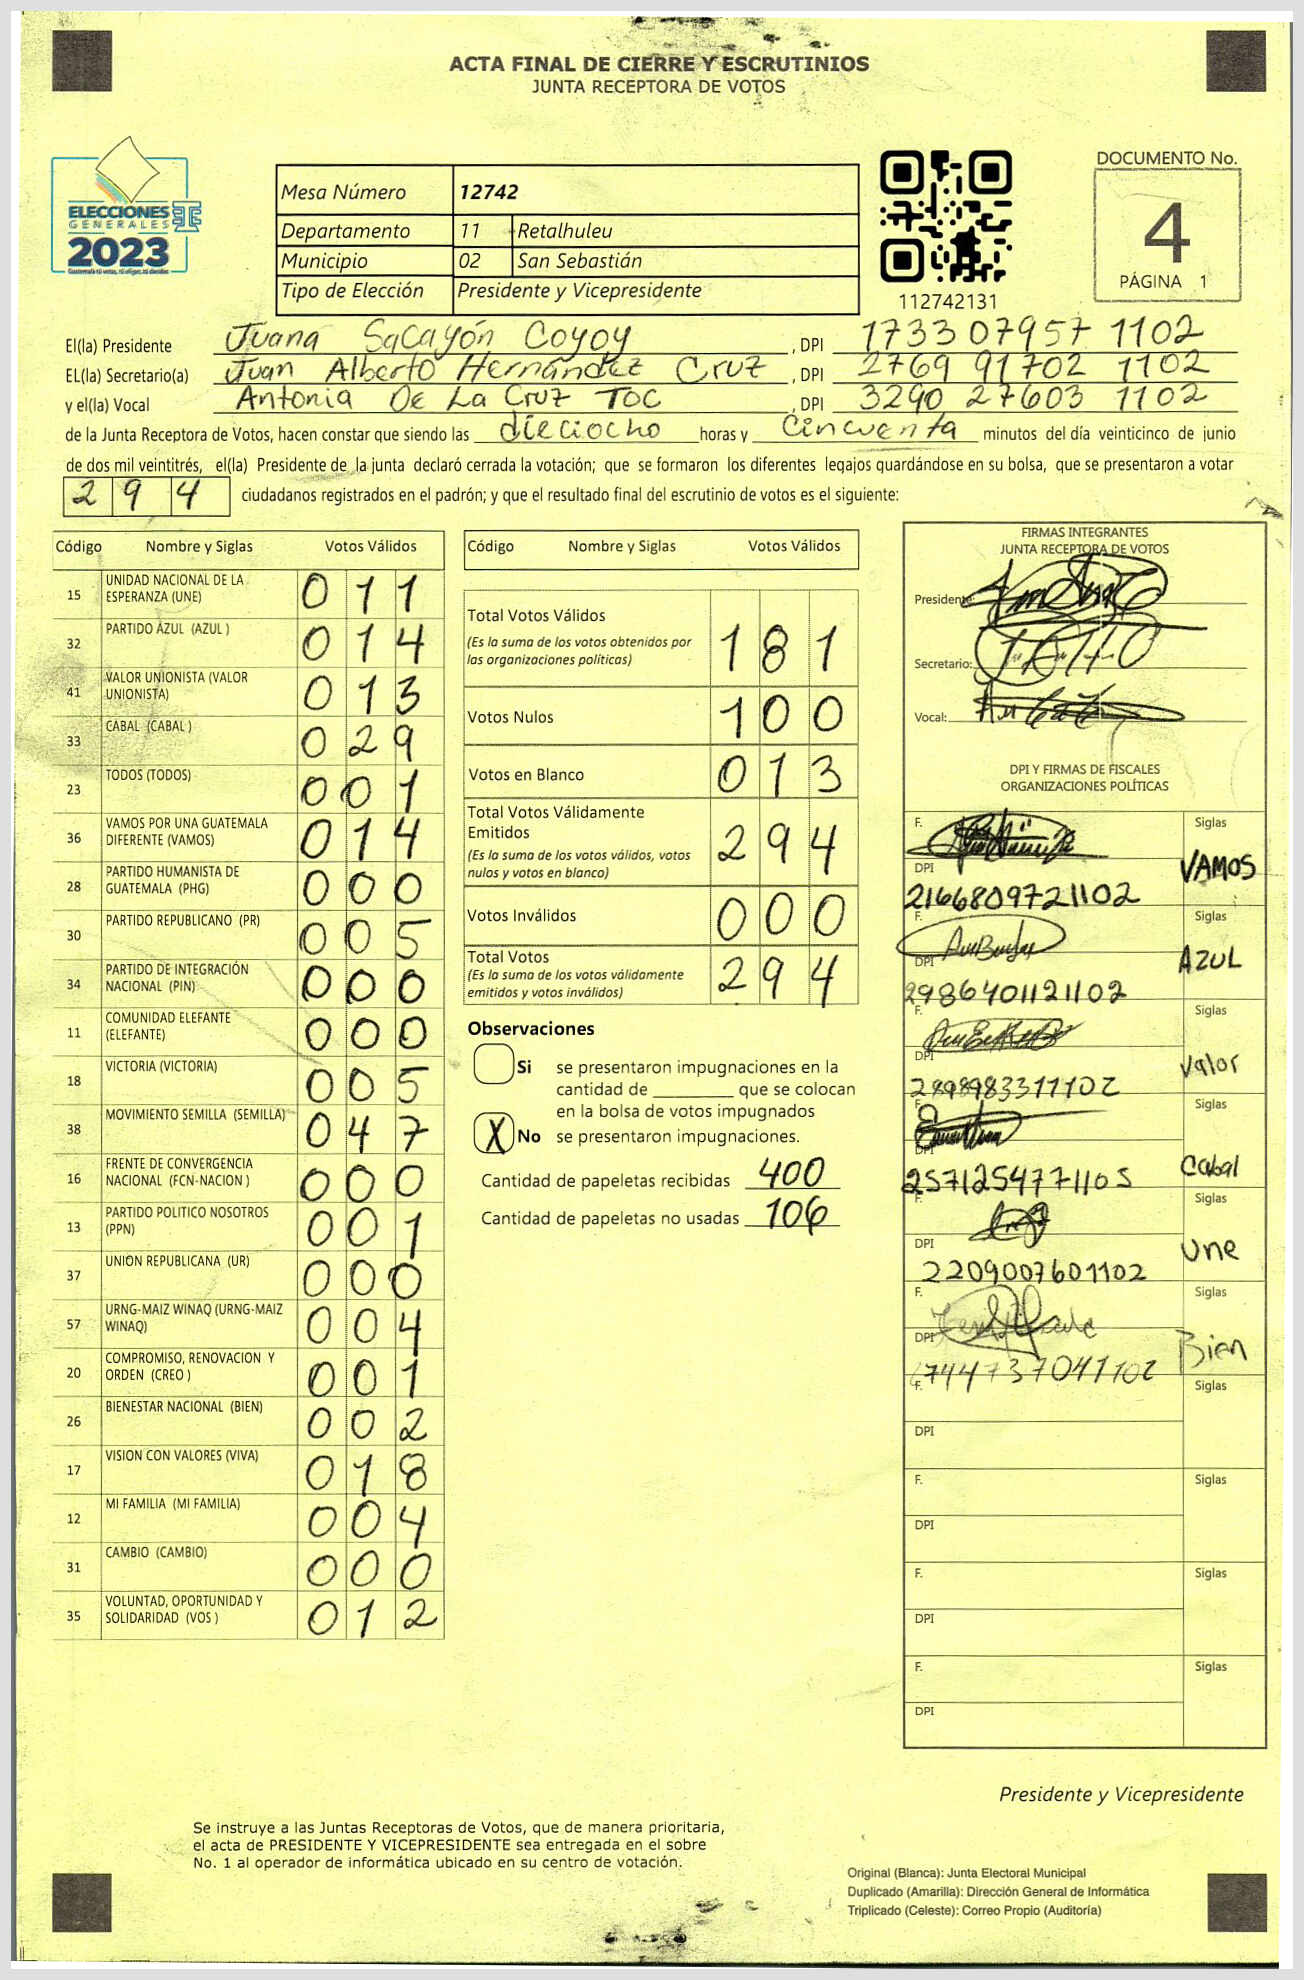 ACTA FINAL DE CIERRE Y ESCRUTINIOS
JUNTA RECEPTORA DE VOTOS
ELECCIONES
GENERALES
2023
Guatemala tú votas, tú eliges, tú decides
Mesa Número 12742
Departamento 11 Retalhuleu
Municipio 02 San Sebastián
Tipo de Elección Presidente y Vicepresidente
112742131
DOCUMENTO No.
4
PÁGINA 1
El(la) Presidente Juana Sacayón Coyoy , DPI 1733 07957 1102
EL(la) Secretario(a) Juan Alberto Hernández Cruz , DPI 2769 91702 1102
y el(la) Vocal Antonia De La Cruz Toc , DPI 3290 27603 1102
de la Junta Receptora de Votos, hacen constar que siendo las dieciocho horas y cincuenta minutos del día veinticinco de junio
de dos mil veintitrés, el(la) Presidente de la junta declaró cerrada la votación; que se formaron los diferentes legajos guardándose en su bolsa, que se presentaron a votar
294 ciudadanos registrados en el padrón; y que el resultado final del escrutinio de votos es el siguiente:
Código Nombre y Siglas Votos Válidos
15 UNIDAD NACIONAL DE LA ESPERANZA (UNE) 011
32 PARTIDO AZUL (AZUL ) 014
41 VALOR UNIONISTA (VALOR UNIONISTA) 013
33 CABAL (CABAL ) 029
23 TODOS (TODOS) 001
36 VAMOS POR UNA GUATEMALA DIFERENTE (VAMOS) 014
28 PARTIDO HUMANISTA DE GUATEMALA (PHG) 000
30 PARTIDO REPUBLICANO (PR) 005
34 PARTIDO DE INTEGRACIÓN NACIONAL (PIN) 000
11 COMUNIDAD ELEFANTE (ELEFANTE) 000
18 VICTORIA (VICTORIA) 005
38 MOVIMIENTO SEMILLA (SEMILLA) 047
16 FRENTE DE CONVERGENCIA NACIONAL (FCN-NACION ) 000
13 PARTIDO POLITICO NOSOTROS (PPN) 001
37 UNION REPUBLICANA (UR) 000
57 URNG-MAIZ WINAQ (URNG-MAIZ WINAQ) 004
20 COMPROMISO, RENOVACION Y ORDEN (CREO ) 001
26 BIENESTAR NACIONAL (BIEN) 002
17 VISION CON VALORES (VIVA) 018
12 MI FAMILIA (MI FAMILIA) 004
31 CAMBIO (CAMBIO) 000
35 VOLUNTAD, OPORTUNIDAD Y SOLIDARIDAD (VOS ) 012
Código Nombre y Siglas Votos Válidos
Total Votos Válidos 181
(Es la suma de los votos obtenidos por
las organizaciones políticas)
Votos Nulos 100
Votos en Blanco 013
Total Votos Válidamente
Emitidos 294
(Es la suma de los votos válidos, votos
nulos y votos en blanco)
Votos Inválidos 000
Total Votos 294
(Es la suma de los votos válidamente
emitidos y votos inválidos)
Observaciones
Si se presentaron impugnaciones en la
cantidad de que se colocan
en la bolsa de votos impugnados
X No se presentaron impugnaciones.
Cantidad de papeletas recibidas 400
Cantidad de papeletas no usadas 106
FIRMAS INTEGRANTES
JUNTA RECEPTORA DE VOTOS
Presidente:
Secretario:
Vocal:
DPI Y FIRMAS DE FISCALES
ORGANIZACIONES POLÍTICAS
F. Siglas
DPI VAMOS
2166809721102
F. Siglas
DPI AZUL
2986401121102
F. Siglas
DPI Valor
2898983311102
F. Siglas
DPI Cabal
2571254771105
F. Siglas
DPI Une
2209007601102
F. Siglas
DPI Bien
F. Siglas
DPI
F. Siglas
DPI
F. Siglas
DPI
F. Siglas
DPI
Presidente y Vicepresidente
Se instruye a las Juntas Receptoras de Votos, que de manera prioritaria,
el acta de PRESIDENTE Y VICEPRESIDENTE sea entregada en el sobre
No. 1 al operador de informática ubicado en su centro de votación.
Original (Blanca): Junta Electoral Municipal
Duplicado (Amarilla): Dirección General de Informática
Triplicado (Celeste): Correo Propio (Auditoría)